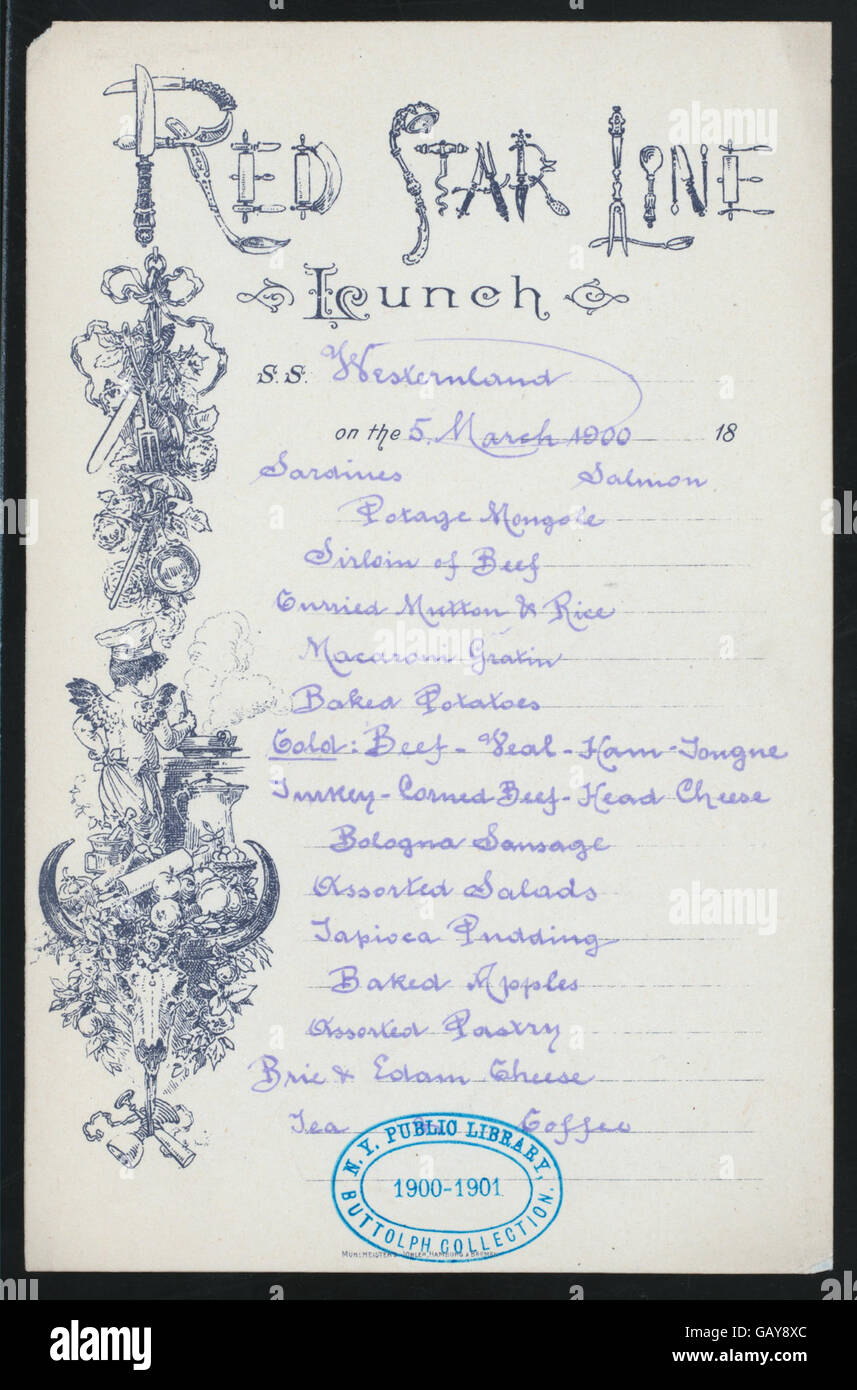 RED STAR LINE
Lunch
S.S. Westernland
on the 5. March 1900 18
Sardines Salmon
Potage Mongole
Sirloin of Beef
Curried Mutton & Rice
Macaroni Gratin
Baked Potatoes
Cold: Beef - Veal - Ham - Tongue
Turkey - Corned Beef - Head Cheese
Bologna Sausage
Assorted Salads
Tapioca Pudding
Baked Apples
Assorted Pastry
Brie & Edam Cheese
Tea Coffee
N.Y. PUBLIC LIBRARY,
1900-1901
BUTTOLPH COLLECTION.
MÜHLMEISTER & JOHLER, HAMBURG & BREMEN
alamy stock photo
alamy
GAY8XC
www.alamy.com